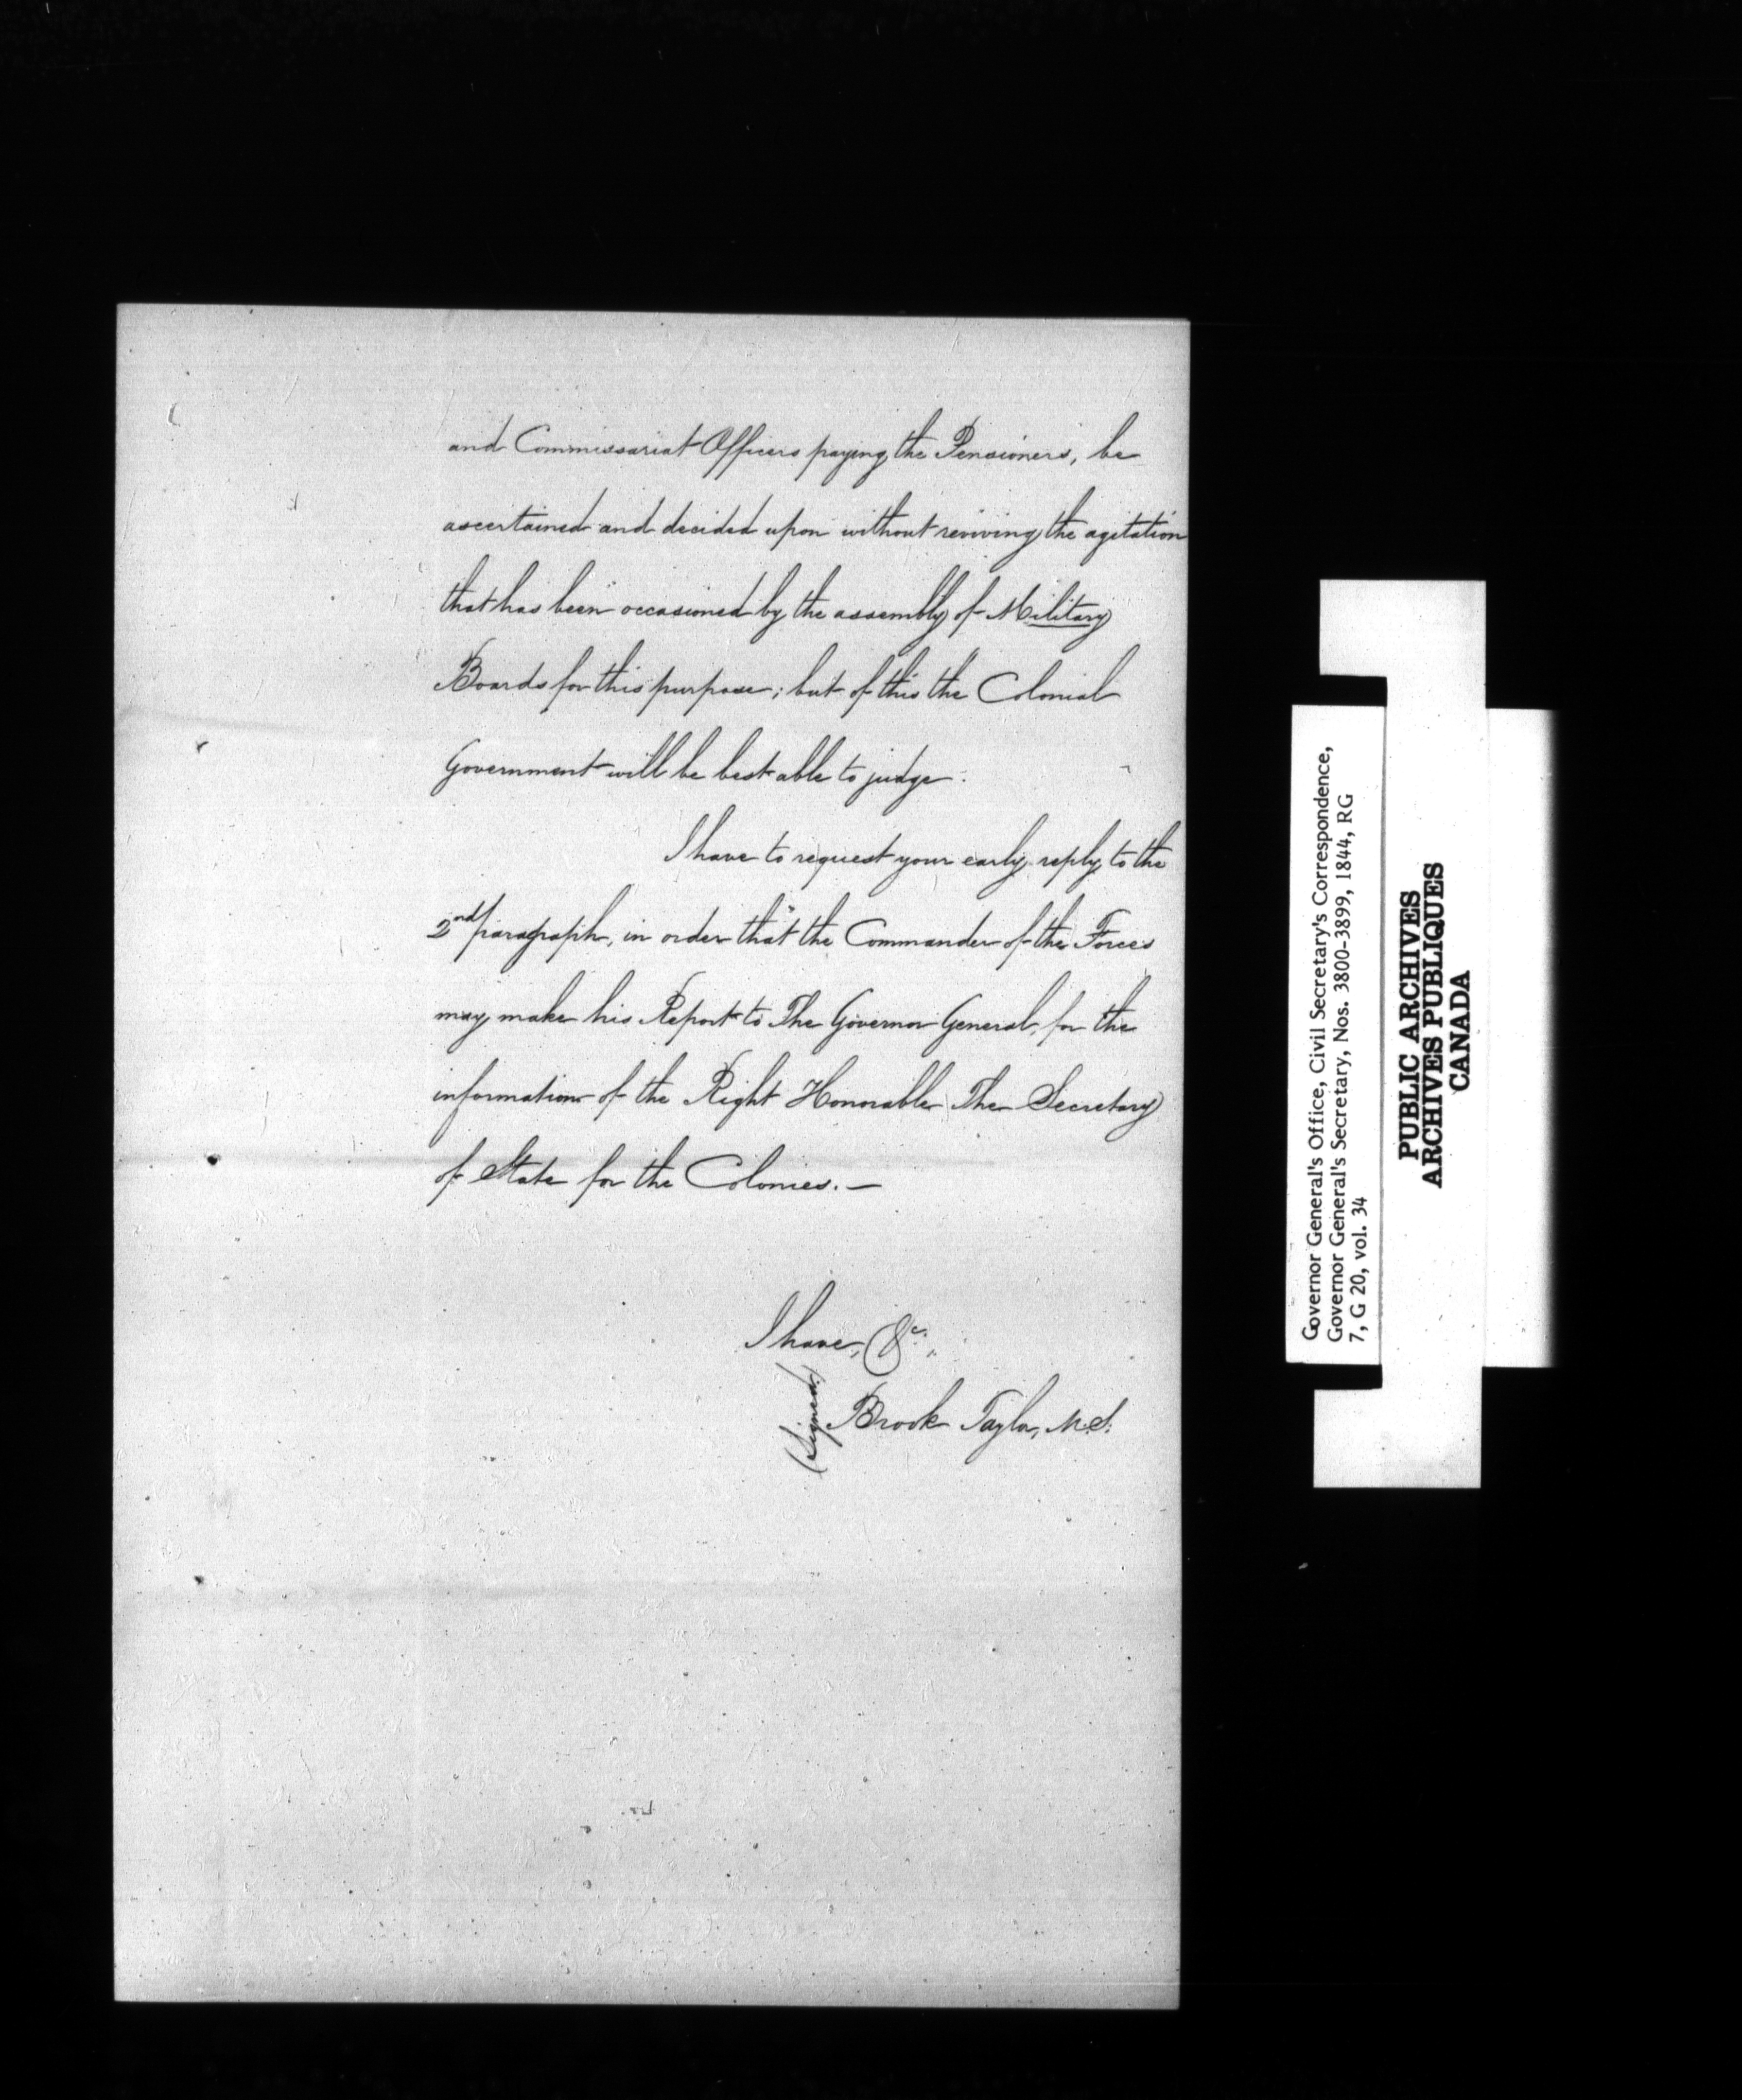 and Commissariat Officers paying the Pensioners, be
ascertained and decided upon without reviving the agitation
that has been occasioned by the assembly of Military
Boards for this purpose; but of this the Colonial
Government will be best able to judge.
I have to request your early reply to the
2nd paragraph, in order that the Commander of the Forces
may make his Report to The Governor General, for the
information of the Right Honorable The Secretary
of State for the Colonies.—
I have, &c.,
(Signed) Brook Taylor, M.S.
Governor General's Office, Civil Secretary's Correspondence,
Governor General's Secretary, Nos. 3800-3899, 1844, RG
7, G 20, vol. 34
PUBLIC ARCHIVES
ARCHIVES PUBLIQUES
CANADA